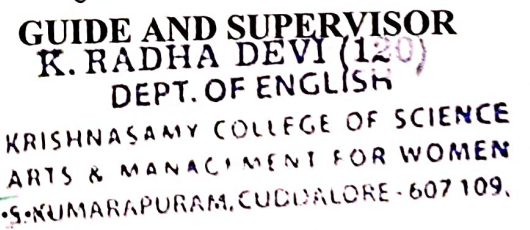 GUIDE AND SUPERVISOR
K. RADHA DEVI (120)
DEPT. OF ENGLISH
KRISHNASAMY COLLEGE OF SCIENCE
ARTS & MANAGEMENT FOR WOMEN
S.KUMARAPURAM, CUDDALORE - 607 109.